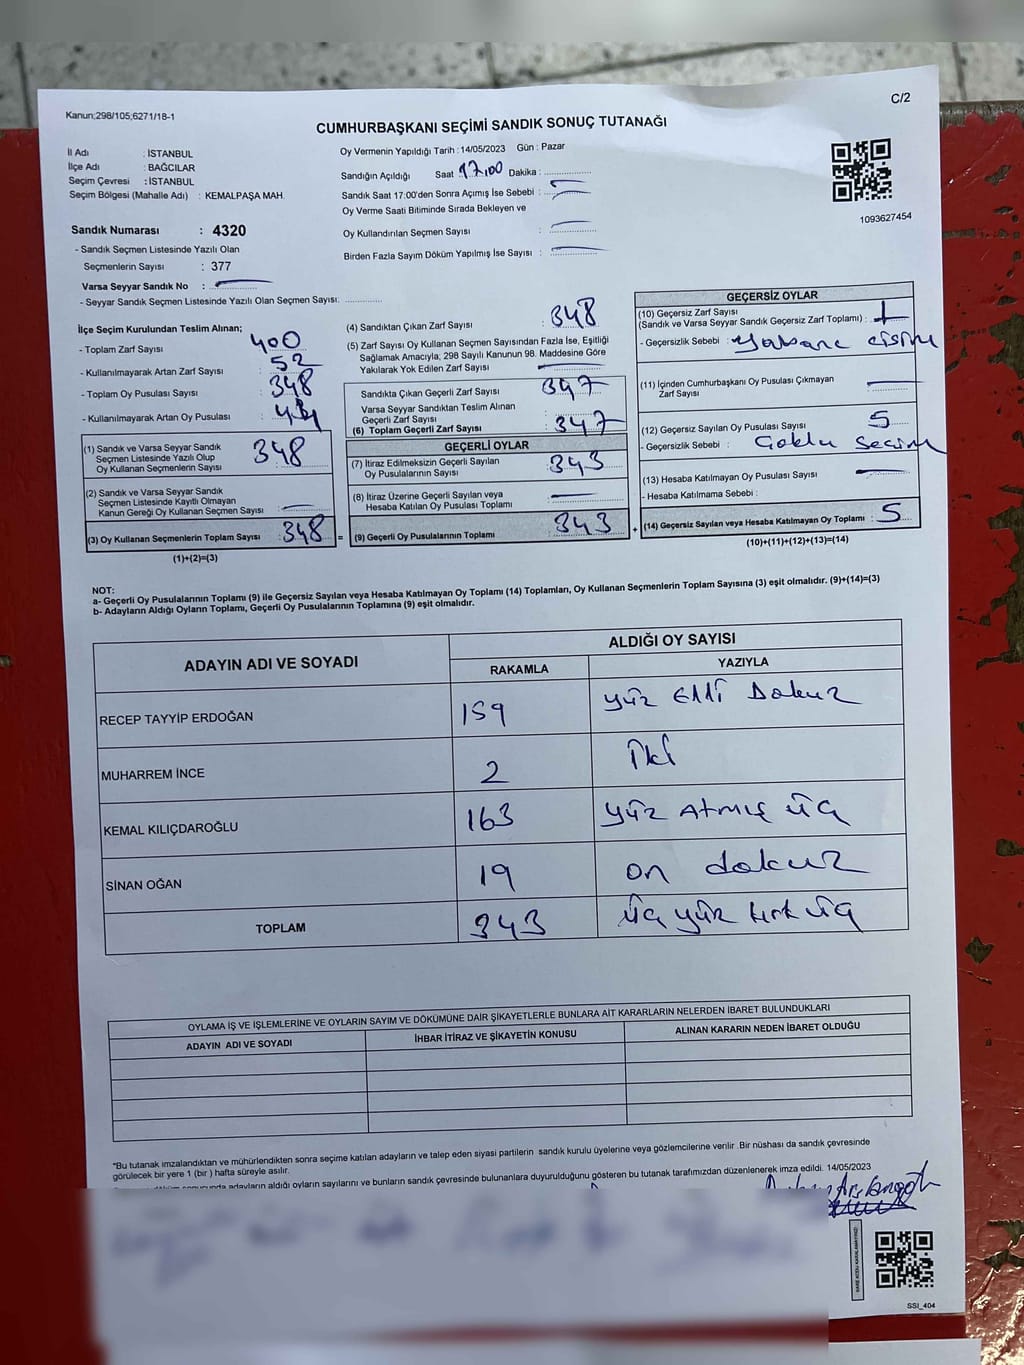 C/2
Kanun;298/105;6271/18-1
CUMHURBAŞKANI SEÇİMİ SANDIK SONUÇ TUTANAĞI
İl Adı : İSTANBUL
İlçe Adı : BAĞCILAR
Seçim Çevresi : İSTANBUL
Seçim Bölgesi (Mahalle Adı) : KEMALPAŞA MAH.
Sandık Numarası : 4320
- Sandık Seçmen Listesinde Yazılı Olan
Seçmenlerin Sayısı : 377
Varsa Seyyar Sandık No :
- Seyyar Sandık Seçmen Listesinde Yazılı Olan Seçmen Sayısı:
Oy Vermenin Yapıldığı Tarih : 14/05/2023 Gün : Pazar
Sandığın Açıldığı Saat 17,00 Dakika :
Sandık Saat 17:00'den Sonra Açımış İse Sebebi :
Oy Verme Saati Bitiminde Sırada Bekleyen ve
Oy Kullandırılan Seçmen Sayısı :
Birden Fazla Sayım Döküm Yapılmış İse Sayısı :
1093627454
İlçe Seçim Kurulundan Teslim Alınan;
- Toplam Zarf Sayısı : 400
- Kullanılmayarak Artan Zarf Sayısı : 52
- Toplam Oy Pusulası Sayısı : 348
- Kullanılmayarak Artan Oy Pusulası :
(1) Sandık ve Varsa Seyyar Sandık
Seçmen Listesinde Yazılı Olup
Oy Kullanan Seçmenlerin Sayısı : 348
(2) Sandık ve Varsa Seyyar Sandık
Seçmen Listesinde Kayıtlı Olmayan
Kanun Gereği Oy Kullanan Seçmen Sayısı :
(3) Oy Kullanan Seçmenlerin Toplam Sayısı : 348 =
(1)+(2)=(3)
(4) Sandıktan Çıkan Zarf Sayısı : 348
(5) Zarf Sayısı Oy Kullanan Seçmen Sayısından Fazla İse, Eşitliği
Sağlamak Amacıyla; 298 Sayılı Kanunun 98. Maddesine Göre
Yakılarak Yok Edilen Zarf Sayısı :
Sandıkta Çıkan Geçerli Zarf Sayısı : 347
Varsa Seyyar Sandıktan Teslim Alınan
Geçerli Zarf Sayısı :
(6) Toplam Geçerli Zarf Sayısı : 347
GEÇERLİ OYLAR
(7) İtiraz Edilmeksizin Geçerli Sayılan
Oy Pusulalarının Sayısı : 343
(8) İtiraz Üzerine Geçerli Sayılan veya
Hesaba Katılan Oy Pusulası Toplamı :
(9) Geçerli Oy Pusulalarının Toplamı : 343 +
GEÇERSİZ OYLAR
(10) Geçersiz Zarf Sayısı
(Sandık ve Varsa Seyyar Sandık Geçersiz Zarf Toplamı) : 1
- Geçersizlik Sebebi : yabancı cisim
(11) İçinden Cumhurbaşkanı Oy Pusulası Çıkmayan
Zarf Sayısı :
(12) Geçersiz Sayılan Oy Pusulası Sayısı : 5
- Geçersizlik Sebebi : Çoklu Seçim
(13) Hesaba Katılmayan Oy Pusulası Sayısı :
- Hesaba Katılmama Sebebi :
(14) Geçersiz Sayılan veya Hesaba Katılmayan Oy Toplamı : 5
(10)+(11)+(12)+(13)=(14)
NOT:
a- Geçerli Oy Pusulalarının Toplamı (9) ile Geçersiz Sayılan veya Hesaba Katılmayan Oy Toplamı (14) Toplamları, Oy Kullanan Seçmenlerin Toplam Sayısına (3) eşit olmalıdır. (9)+(14)=(3)
b- Adayların Aldığı Oyların Toplamı, Geçerli Oy Pusulalarının Toplamına (9) eşit olmalıdır.
ADAYIN ADI VE SOYADI
ALDIĞI OY SAYISI
RAKAMLA YAZIYLA
RECEP TAYYİP ERDOĞAN 159 yüz Elli Dokuz
MUHARREM İNCE 2 İki
KEMAL KILIÇDAROĞLU 163 yüz Atmış üç
SİNAN OĞAN 19 on dokuz
TOPLAM 343 üç yüz kırk üç
OYLAMA İŞ VE İŞLEMLERİNE VE OYLARIN SAYIM VE DÖKÜMÜNE DAİR ŞİKAYETLERLE BUNLARA AİT KARARLARIN NELERDEN İBARET BULUNDUKLARI
ADAYIN ADI VE SOYADI İHBAR İTİRAZ VE ŞİKAYETİN KONUSU ALINAN KARARIN NEDEN İBARET OLDUĞU
"Bu tutanak imzalandıktan ve mühürlendikten sonra seçime katılan adayların ve talep eden siyasi partilerin sandık kurulu üyelerine veya gözlemcilerine verilir. Bir nüshası da sandık çevresinde
görülecek bir yere 1 (bir ) hafta süreyle asılır.
adayların aldığı oyların sayılarını ve bunların sandık çevresinde bulunanlara duyurulduğunu gösteren bu tutanak tarafımızdan düzenlenerek imza edildi. 14/05/2023
SSİ_404